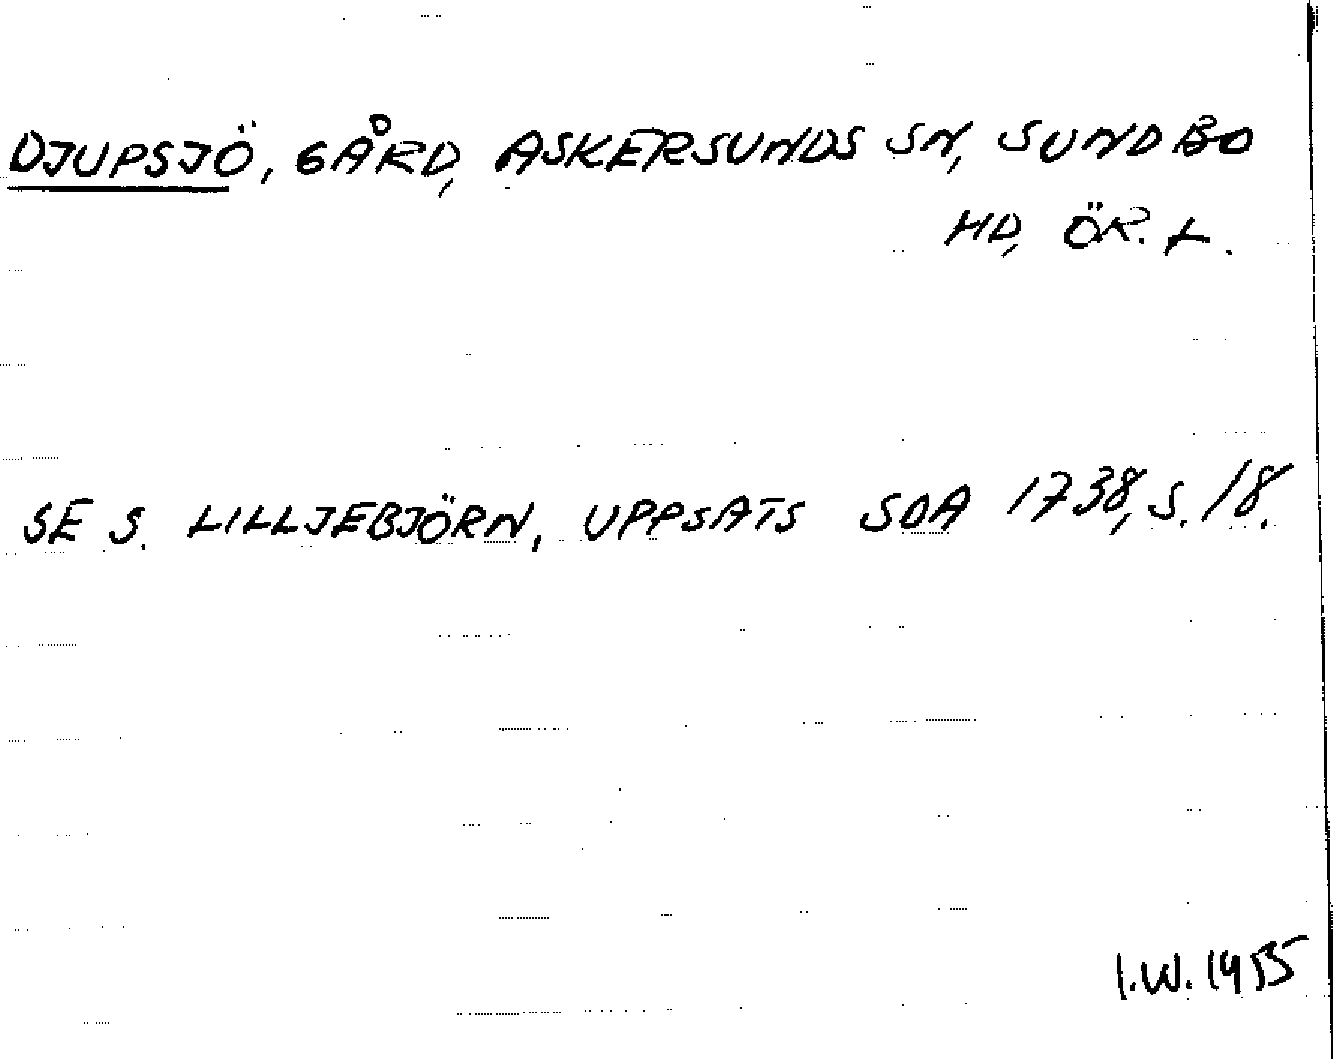 DJUPSJÖ, GÅRD, ASKERSUNDS SN, SUNDBO
HD, ÖR. L.
SE S. LILLJEBJÖRN, UPPSATS SOA 1738, S. 18.
I.W. 1955